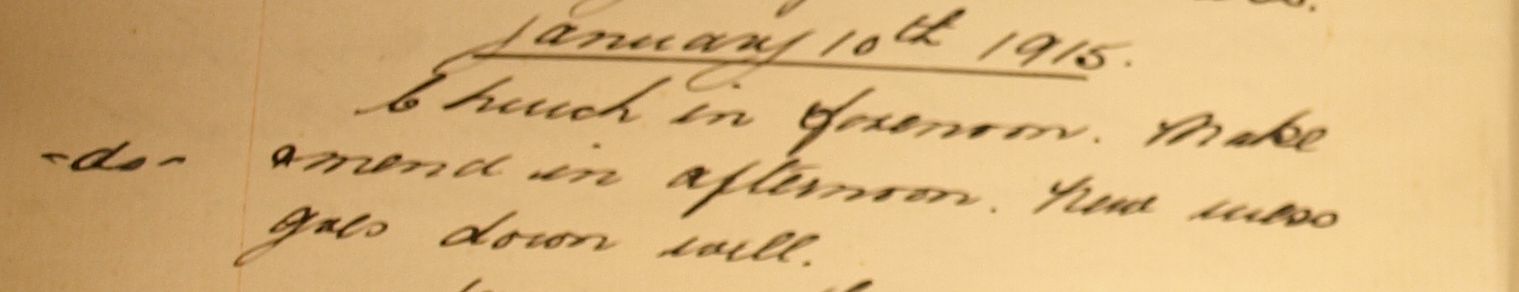 January 10th 1915.
Church in forenoon. Make
-do- amend in afternoon. New mess
goes down well.